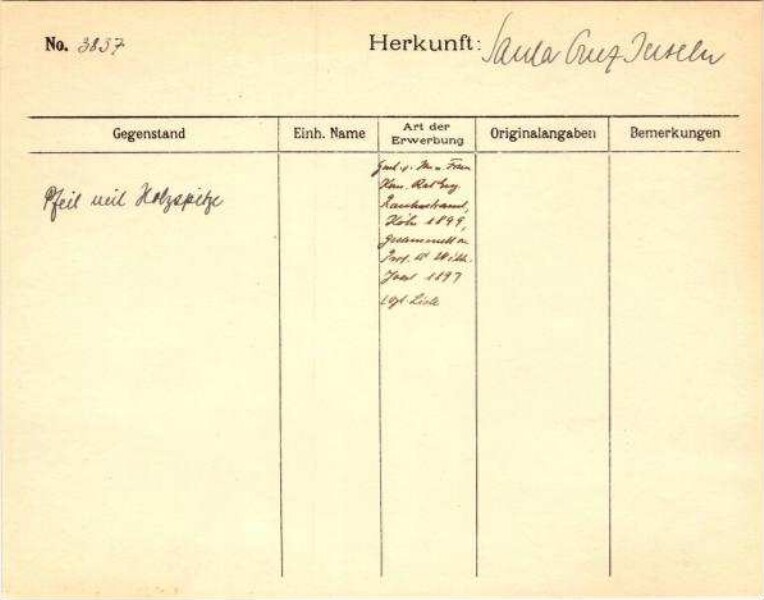 No. 3837
Herkunft: Santa Cruz Inseln
Gegenstand
Einh. Name
Art der Erwerbung
Originalangaben
Bemerkungen
Pfeil mit Holzspitze
Frau
Rautenstrauch,
Köln 1899,
gesammelt von
Prof. Dr. Wilh.
Joest 1897
vgl. Liste